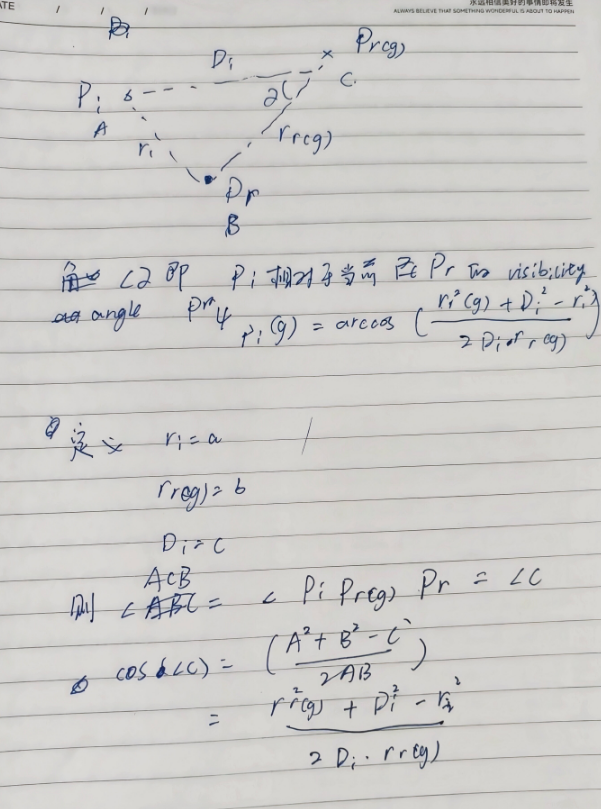 ATE / / /
永远相信美好的事情即将发生
ALWAYS BELIEVE THAT SOMETHING WONDERFUL IS ABOUT TO HAPPEN
Pr(g)
Di
C
Pi
2
A
rr(g)
ri
Pr
B
∠2 即 Pi 相对于当前 在 Pr visibility
angle Prψ Pi(g) = arccos ( (ri²(g) + Di² - ri²) / (2 Di · rr(g)) )
定义 ri = a
rr(g) = b
Di = c
ACB
则 ∠ABC = ∠ Pi Pr(g) Pr = ∠C
cos(∠C) = ( (A² + B² - C²) / (2AB) )
= (rr²(g) + Di² - ri²) / (2 Di · rr(g))